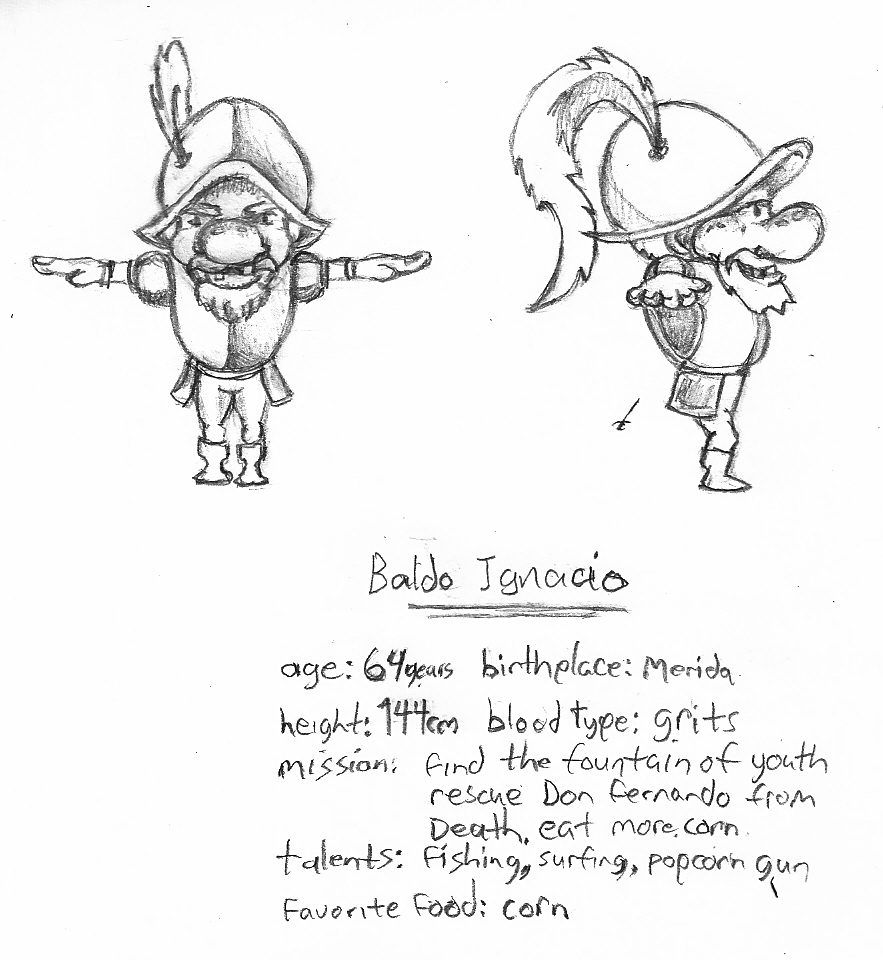 Baldo Ignacio
age: 64 years birthplace: Merida
height: 144cm blood type: grits
mission: find the fountain of youth
rescue Don Fernando from
Death, eat more corn.
talents: Fishing, surfing, popcorn gun
Favorite Food: corn